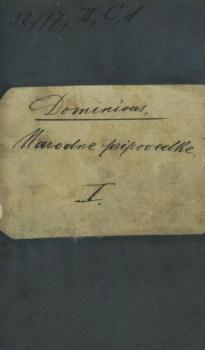 32777, II, C, d
Dominicus,
Narodne pripovedke.
I.